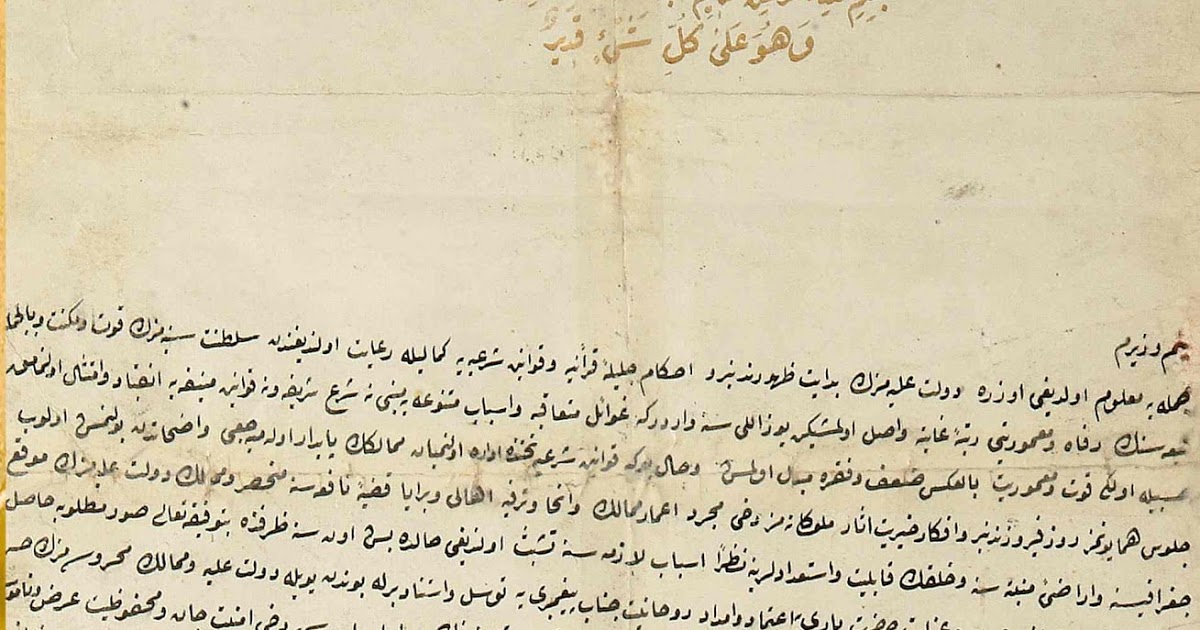 وَهُوَ عَلَى كُلِّ شَيْءٍ قَدِيرٌ
وزیرم
جمله یه معلوم اولدیغی اوزره دولت علیه مزك بدایت ظهورندنبرو احكام جلیلهٔ قرآنیه و قوانین شرعیه یه كمالیله رعایت اولندیغندن سلطنت سنیه مزك قوت و مكنت و بالجمله
تبعه سنك رفاه و معموریتی رتبهٔ غایته واصل اولمشیكن یوز اللی سنه وار دركه غوائل متعاقبه و اسباب متنوعه یه مبنی نه شرع شریفه و نه قوانین منیفه یه انقیاد و امتثال اولنمامق
حسبیله اولكی قوت و معموریت بالعكس ضعف و فقره مبدل اولمش و حال بوكه قوانین شرعیه تحتنده اداره اولنمیان ممالكك پایدار اوله میه جغی واضحاتدن بولنمش اولوب
جلوس همایونمز روز فیروزندنبرو افكار خیریت آثار ملوكانه مز دخی مجرد اعمار ممالك و انحا و ترفیه اهالی و برایا قضیهٔ نافعه سنه منحصر و ممالك دولت علیه مزك موقع
جغرافیسنه و اراضیٔ منبته سنه و خلقك قابلیت و استعدادلرینه نظراً اسباب لازمه سنه تشبث اولندیغی حالده بش اون سنه ظرفنده بتوفیقه تعالی صور مطلوبه حاصل
حضرت باری یه اعتماد و امداد روحانیت جناب پیغمبری یه توسل و استناد برله بوندن بویله دولت علیه و ممالك محروسه مزك
دخی امنیت جان و محفوظیت عرض و ناموس